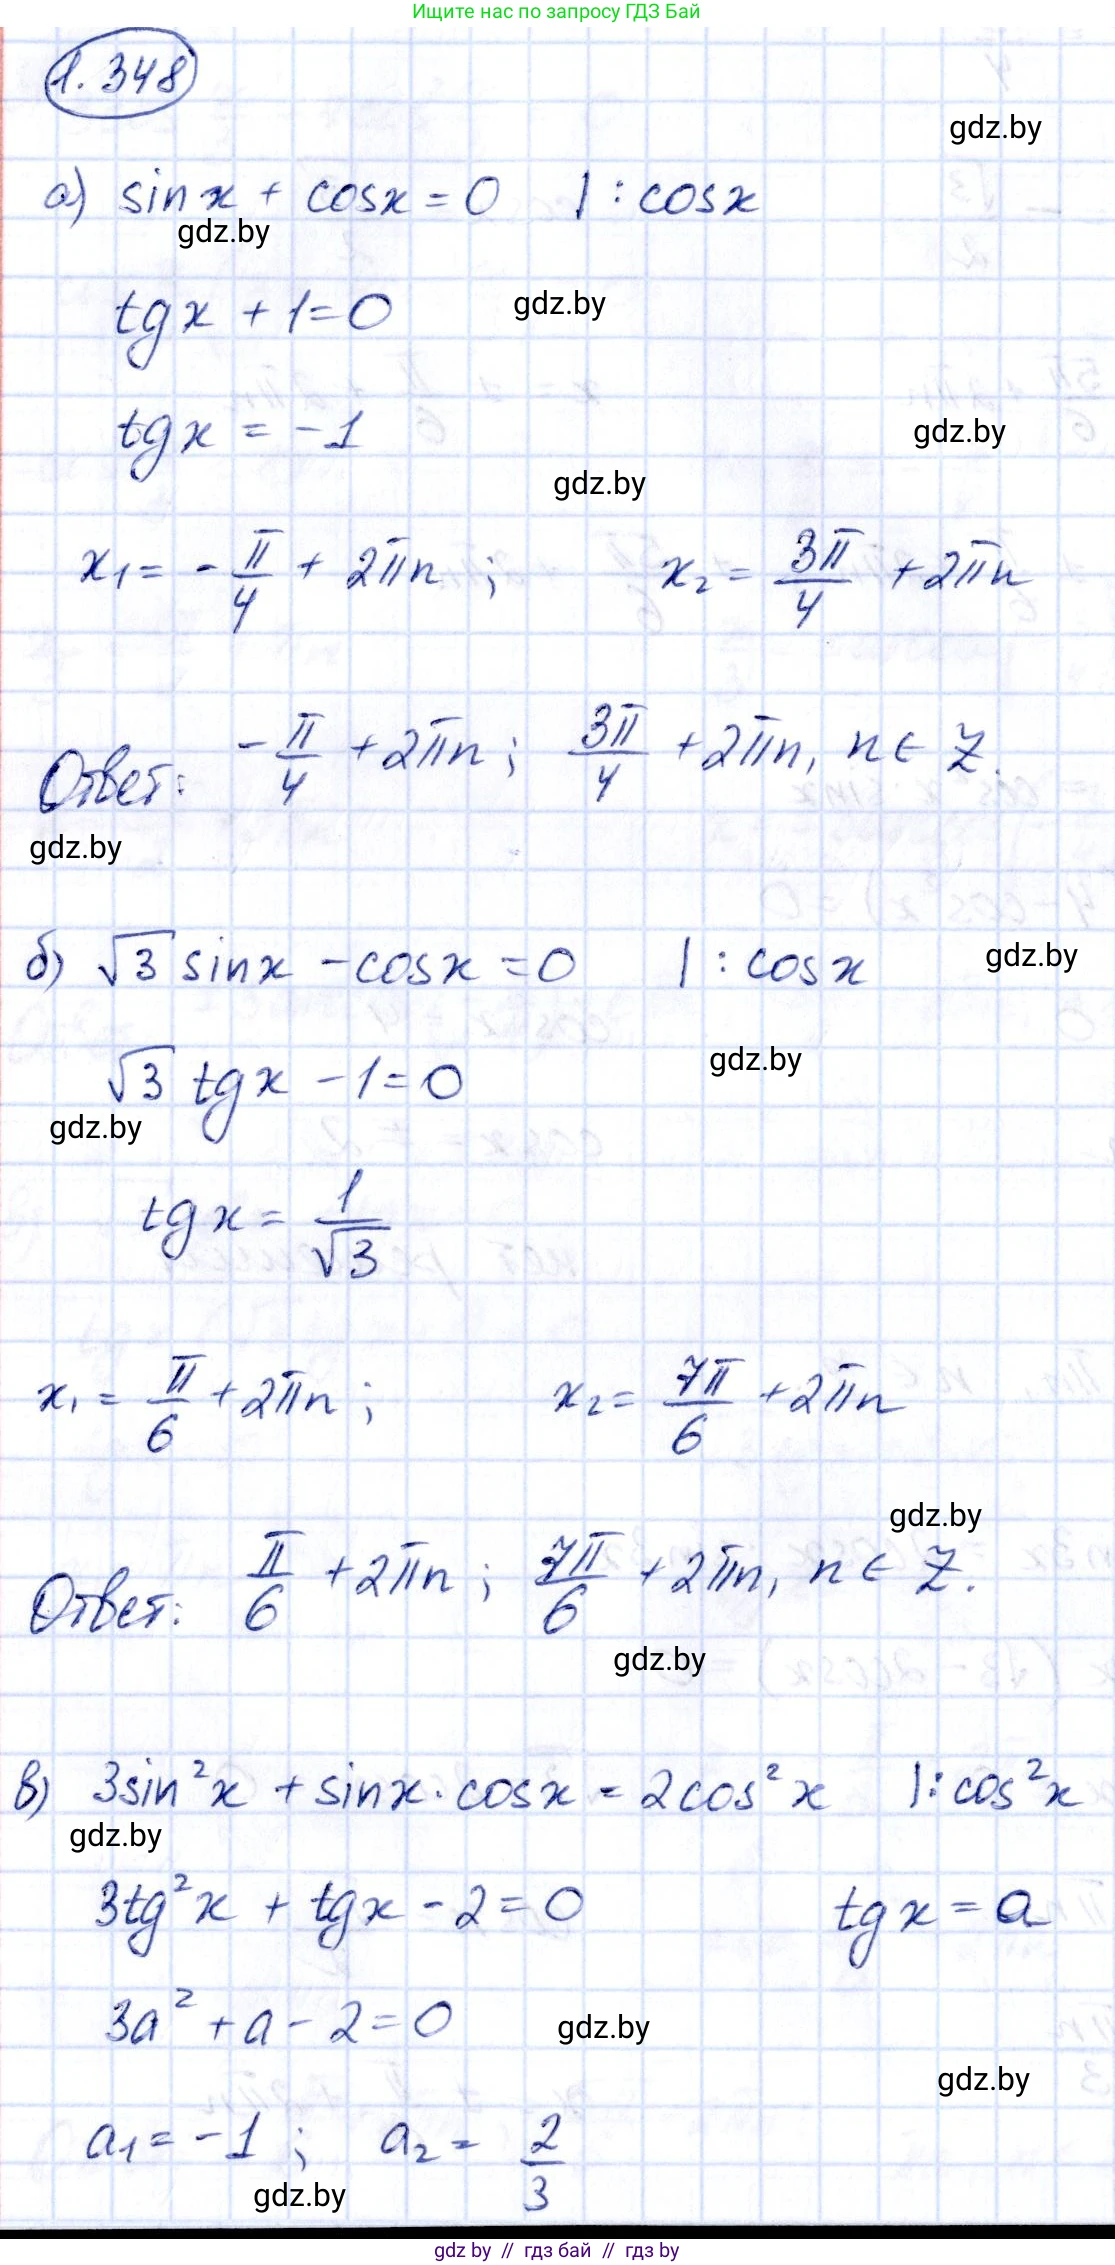 Ищите нас по запросу ГДЗ Бай
1.348
gdz.by
а) sinx + cosx = 0 | : cosx
gdz.by
tgx + 1 = 0
gdz.by
tgx = -1
gdz.by
gdz.by
x₁ = -π/4 + 2πn ; x₂ = 3π/4 + 2πn
Ответ: -π/4 + 2πn ; 3π/4 + 2πn, n ∈ Z.
gdz.by
б) √3 sinx - cosx = 0 | : cosx
gdz.by
√3 tgx - 1 = 0
gdz.by
gdz.by
tgx = 1/√3
x₁ = π/6 + 2πn ; x₂ = 7π/6 + 2πn
gdz.by
Ответ: π/6 + 2πn ; 7π/6 + 2πn, n ∈ Z.
gdz.by
в) 3sin²x + sinx · cosx = 2cos²x | : cos²x
gdz.by
3tg²x + tgx - 2 = 0 tgx = a
3a² + a - 2 = 0
gdz.by
gdz.by
a₁ = -1 ; a₂ = 2/3
gdz.by
gdz by // гдз бай // гдз by